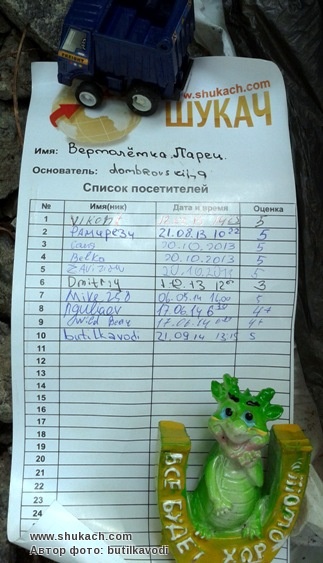 www.shukach.com
ШУКАЧ
Имя: Вертолётка. Парец.
Основатель: dombrovskiya
Список посетителей
№ Имя(ник) Дата и время Оценка
1 5
2 Рамирезы 21.08.13 10 22 5
3 20.10.2013 5
4 Belka 20.10.2013 5
5 20.10.2013 5
6 Dmitriy 1.12.13 12 00 3
7 Mike 250 06.05.14 1600 5
8 17.06.14 4+
9 17.06.14 4+
10 butilkavodi 21.09.14 13,15 5
11
12
13
14
15
16
17
18
19
20
21
22
23
24
ВСЕ БУДЕ
ХОР
www.shukach.com
Автор фото: butilkavodi